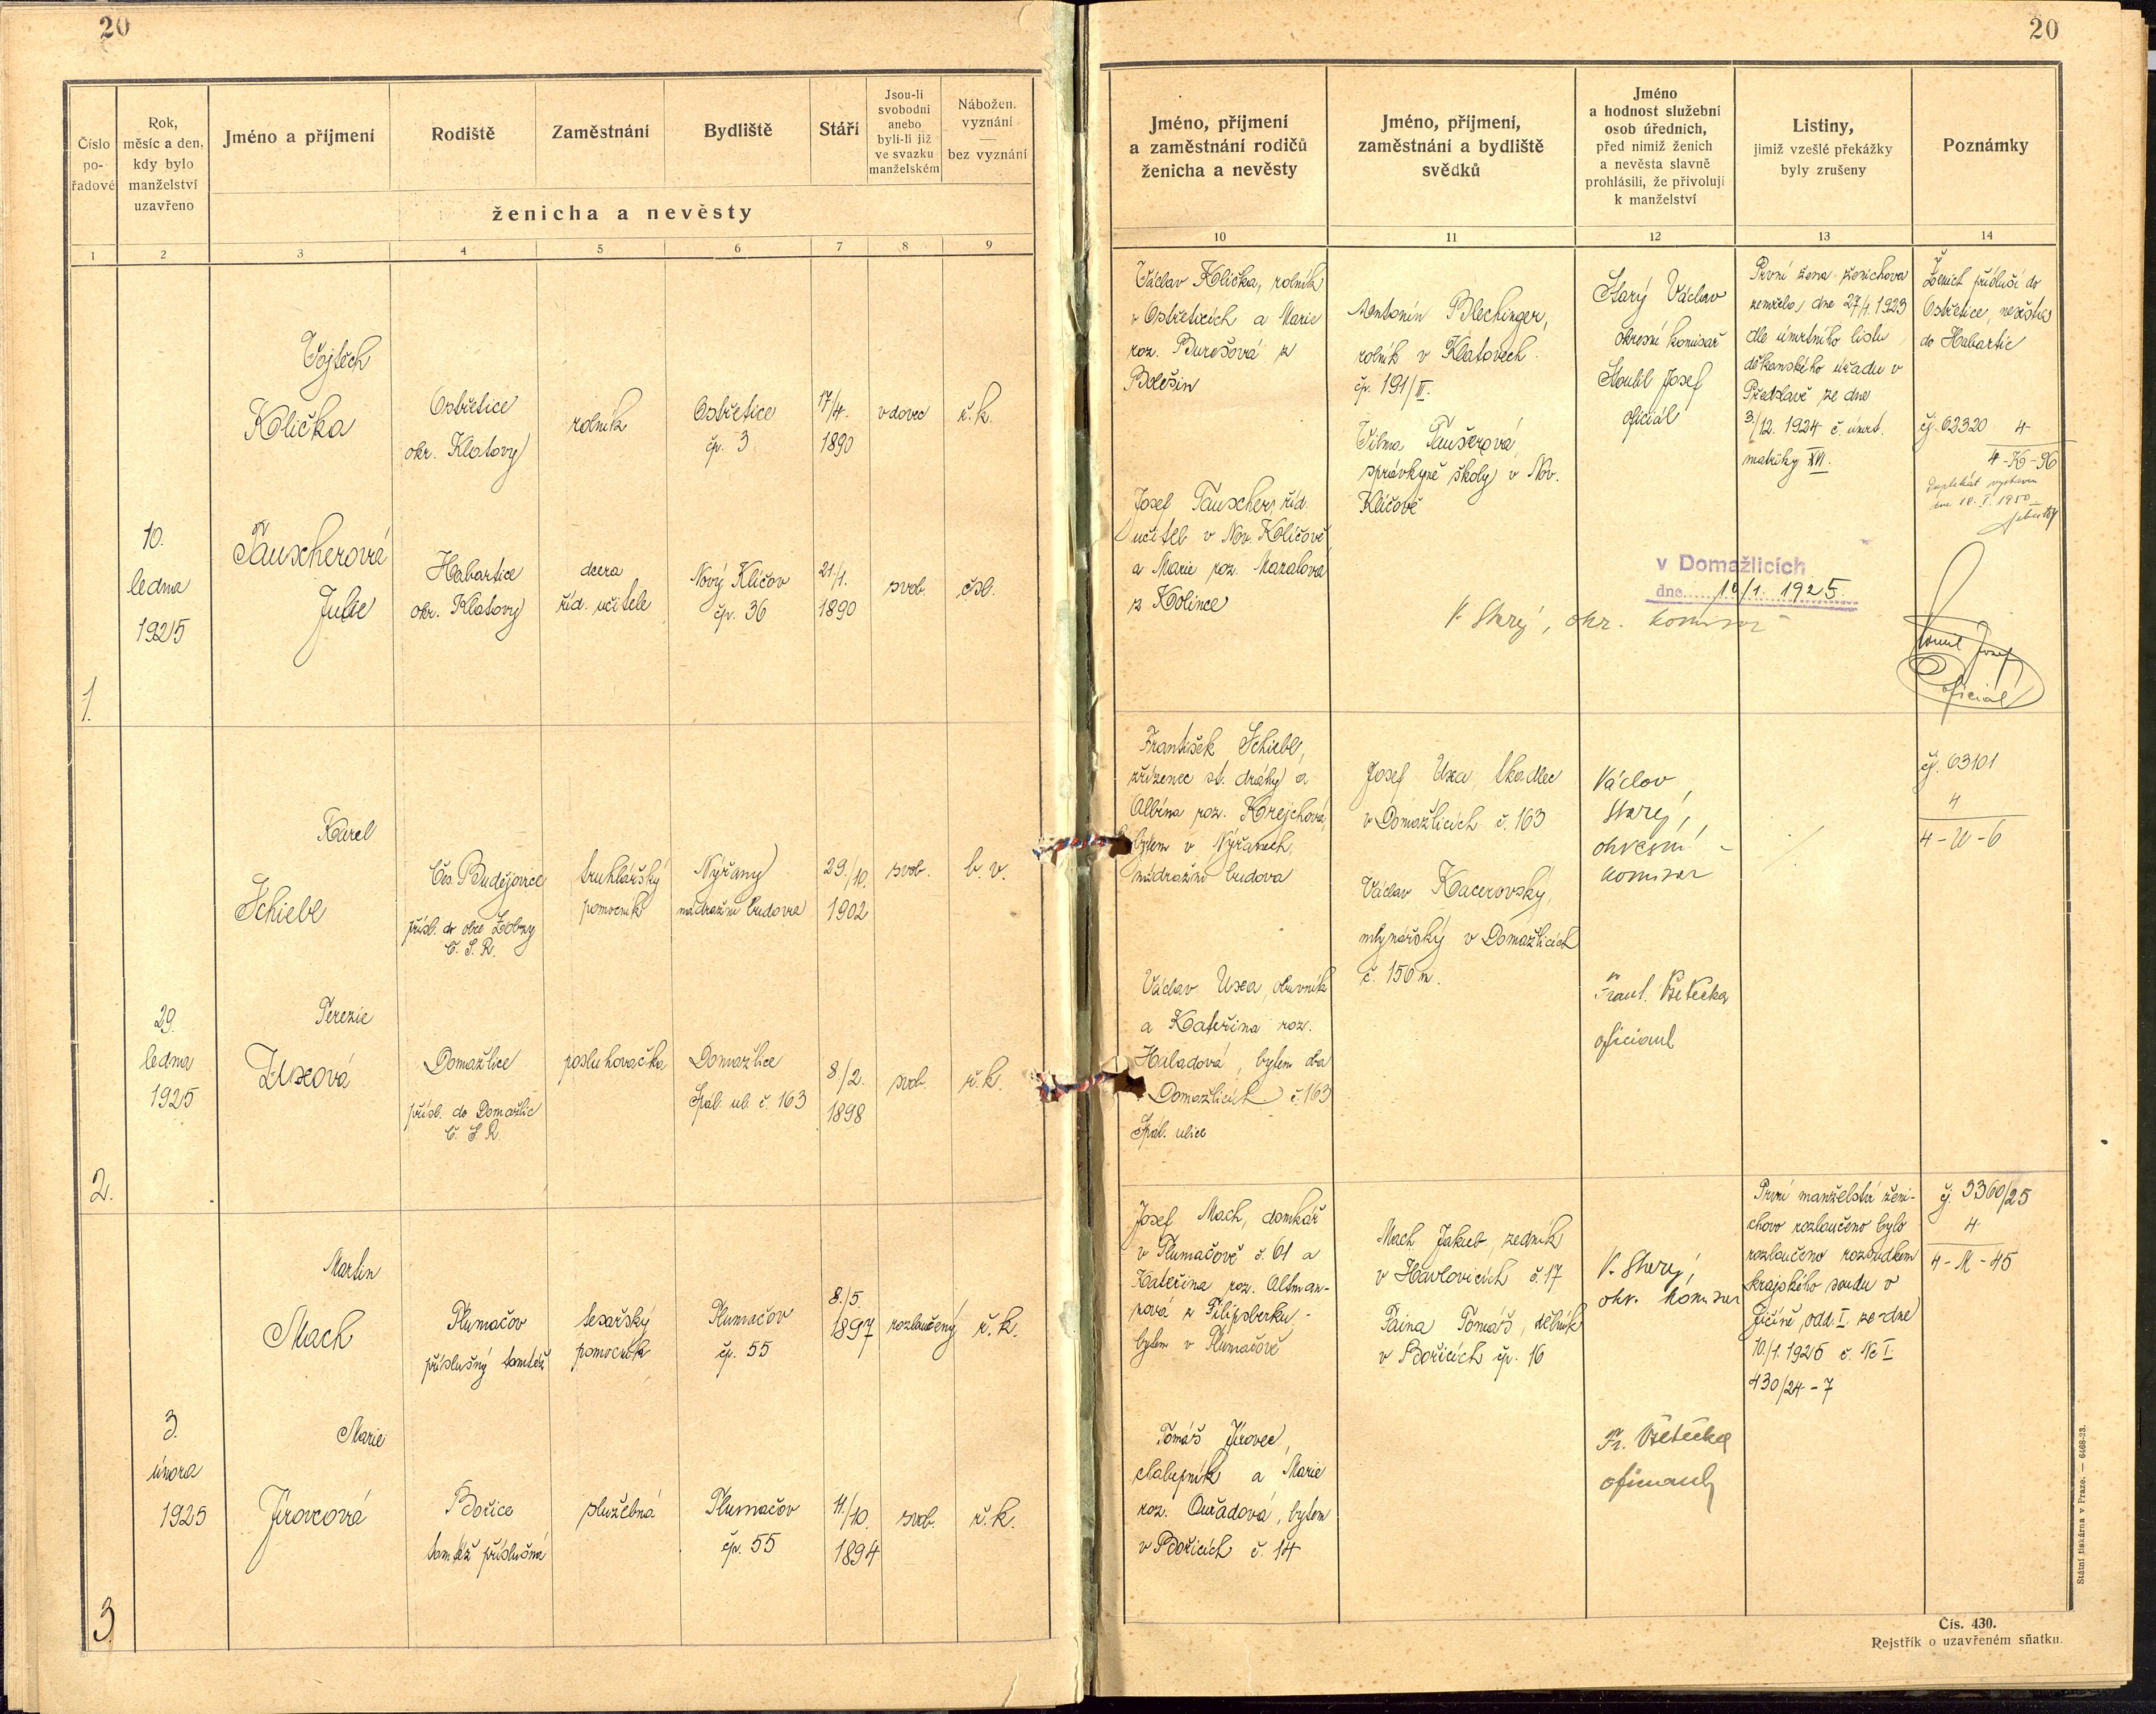 20
20
Číslo pořadové
Rok, měsíc a den, kdy bylo manželství uzavřeno
Jméno a příjmení
Rodiště
Zaměstnání
Bydliště
Stáří
Jsou-li svobodni anebo byli-li již ve svazku manželském
Nábožen. vyznání — bez vyznání
ženicha a nevěsty
Jméno, příjmení a zaměstnání rodičů ženicha a nevěsty
Jméno, příjmení, zaměstnání a bydliště svědků
Jméno a hodnost služební osob úředních, před nimiž ženich a nevěsta slavně prohlásili, že přivolují k manželství
Listiny, jimiž vzešlé překážky byly zrušeny
Poznámky
1 2 3 4 5 6 7 8 9 10 11 12 13 14
1.
10.
ledna
1925
Vojtěch
Klička
Ostřetice
okr. Klatovy
rolník
Ostřetice
čp. 3
17/4.
1890
vdovec
ř. k.
Tauscherová
Julie
Habartice
okr. Klatovy
dcera
říd. učitele
Nový Klíčov
čp. 36
21/1.
1890
svob.
čsl.
Václav Klička, rolník
v Ostřeticích a Marie
roz. Burešová z
Bolešin
Josef Tauscher, říd.
učitel v Nov. Klíčově
a Marie roz. Mazalová
z Kolince
Antonín Blechinger,
rolník v Klatovech
čp. 191/II.
Vilma Taušerová,
správkyně školy v Nov.
Klíčově
Starý Václav
okresní komisař
Josef
oficiál
První žena ženichova
zemřela dne 27/4. 1923
dle úmrtního listu
děkanského úřadu v
Předslavě ze dne
3./12. 1924 č. úmrt.
matriky XVI.
Ženich přísluší do
Ostřetice, nevěsta
do Habartic
čj. 62320 4
4-K-96
Duplikát vystaven
dne 18. I. 1950
v Domažlicích
dne 10/1. 1925.
V. Starý, okr. komisař
Josef
oficiál
2.
29.
ledna
1925
Karel
Schiebl
Čes. Budějovice
přísl. do obce
Č. S. R.
truhlářský
pomocník
Nýřany
nádražní budova
29./10.
1902
svob.
b. v.
Terezie
Uxová
Domažlice
přísl. do Domažlic
Č. S. R.
posluhovačka
Domažlice
Spál. ul. č. 163
8./2.
1898
svob.
ř. k.
František Schiebl,
zřízenec st. dráhy a
Albína roz. Krejchová,
bytem v Nýřanech,
nádražní budova
Václav Uxa, obuvník
a Kateřina roz.
Haladová, bytem oba
Domažlicích č. 163
Spál. ulice
Josef Uxa, tkadlec
v Domažlicích č. 163
Václav Kacerovský,
mlynářský v Domažlicích
č. 150 n.
Václav
Starý,
okresní
komisar
Frant. Všetečka
oficiant
čj. 63101
4
4-U-6
3.
3.
února
1925
Martin
Mach
Tlumačov
příslušný tamtéž
tesařský
pomocník
Tlumačov
čp. 55
8./5.
1897
rozloučený
ř. k.
Marie
Jírovcová
Bořice
tamtéž příslušná
služebná
Tlumačov
čp. 55
11/10.
1894
svob.
ř. k.
Josef Mach, domkář
v Tlumačově č. 61 a
Kateřina roz. Altman-
nová z Filipsberku -
bytem v Tlumačově
Tomáš Jírovec,
chalupník a Marie
roz. Ouřadová, bytem
v Bořicích č. 14
Mach Jakub, zedník
v Havlovicích č. 17
Paina Tomáš, dělník
v Bořicích čp. 16
V. Starý,
okr. komisar
Fr. Všetečka
oficiant
První manželství ženi-
chovo rozloučeno bylo
rozloučeno rozsudkem
krajského soudu v
Jičíně, odd. I. ze dne
10/1. 1925 č. Nc I.
430/24-7
čj. 3360/25
4
4-M-45
Státní tiskárna v Praze. — 6468-23.
Čís. 430.
Rejstřík o uzavřeném sňatku.